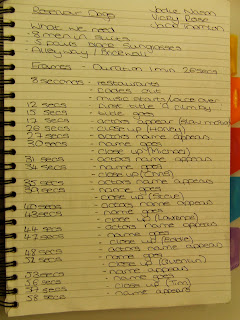 Reservoir Dogs
Jade Nason
Vicky Rose
Jack Thornton
What we need
- 8 men in suits
- 5 pairs black sunglasses
- Alleyway / Brickwall
Frames - Duration 1 min 26 secs
8 seconds - restaurants
- fades out
- music starts / voice over
12 secs - title &
15 secs - title goes
17 secs - actors appear (slow motion)
26 secs - close up (Harvey)
27 secs - actors name appears
30 secs - name goes
- close up (Michael)
31 secs - actors name appears
34 secs - name goes
- close up (Chris)
35 secs - actors name appears
39 secs - name goes
- close up (Steve)
40 secs - actors name appears
43 secs - name goes
- close up (Lawrence)
44 secs - actors name appears
47 secs - name goes
- close up (Eddie)
48 secs - actors name appears
52 secs - name goes
- close up (Quentin)
53 secs - name appears
56 secs - name goes
57 secs - close up (Tim)
58 secs - name appears